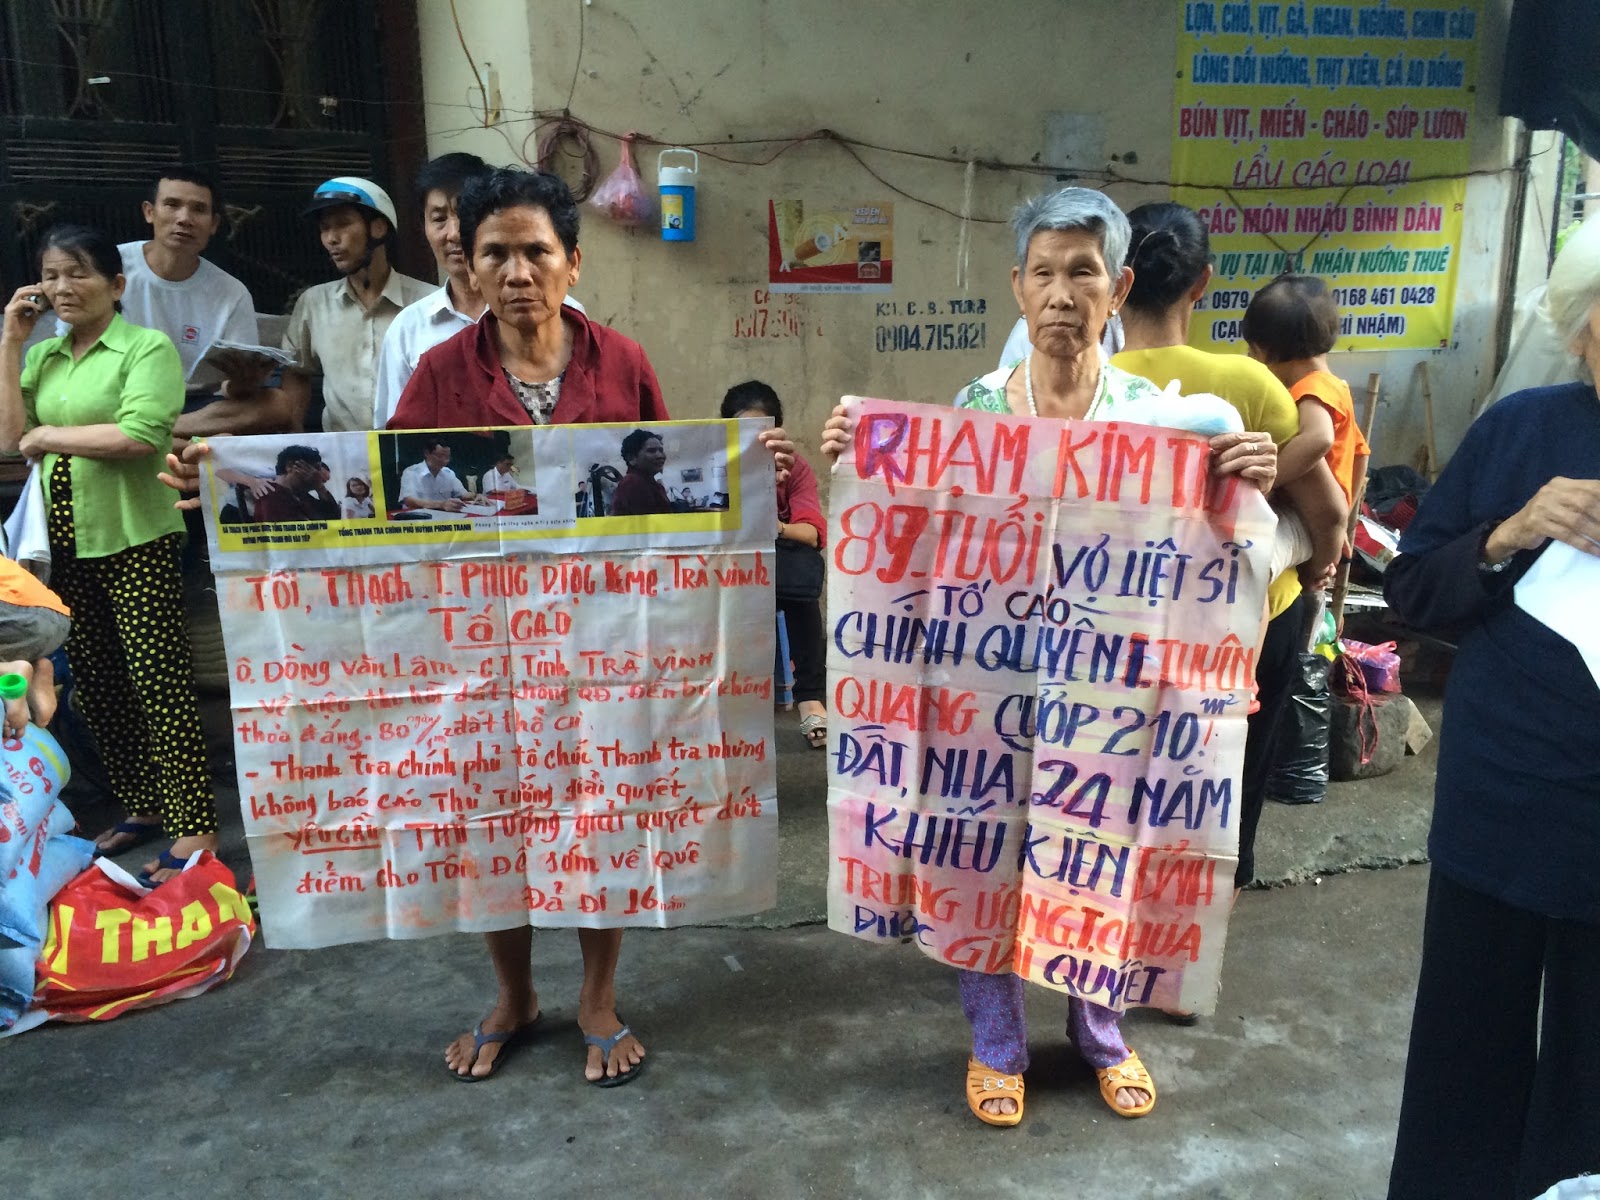 LỢN, CHÓ, VỊT, GÀ, NGAN, NGỖNG, CHIM CÂU
LÒNG DỒI NƯỚNG, THỊT XIÊN, CÁ AO ĐỒNG
BÚN VỊT, MIẾN - CHÁO - SÚP LƯƠN
LẨU CÁC LOẠI
CÁC MÓN NHẬU BÌNH DÂN
VỤ TẠI NHÀ, NHẬN NƯỚNG THUÊ
0979 0168 461 0428
KH. C. B. TÔNG
0904.715.821
TỔNG THANH TRA CHÍNH PHỦ HUỲNH PHONG TRANH
TÔI, THẠCH.T.PHÚC D.TỘC KME.TRÀ VINH
TỐ CÁO
Ô. ĐỒNG VĂN LÂM - C.T Tỉnh, TRÀ VINH
về việc thu hồi đất không QĐ. Đền bù không
thỏa đáng. 80 ngàn/1m2 đất thổ cư.
- Thanh tra chính phủ tổ chức Thanh tra nhưng
không báo cáo Thủ Tướng giải quyết
YÊU CẦU THỦ TƯỚNG giải quyết dứt
điểm cho Tôi. Để sớm về Quê
Đã Đi 16 năm
PHẠM KIM
89 TUỔI VỢ LIỆT SĨ
TỐ CÁO
CHÍNH QUYỀN T. TUYÊN
QUANG CƯỚP 210 m2!
ĐẤT, NHÀ. 24 NĂM
KHIẾU KIỆN TỈNH
TRUNG ƯƠNG.T.CHƯA
ĐƯỢC GIẢI QUYẾT